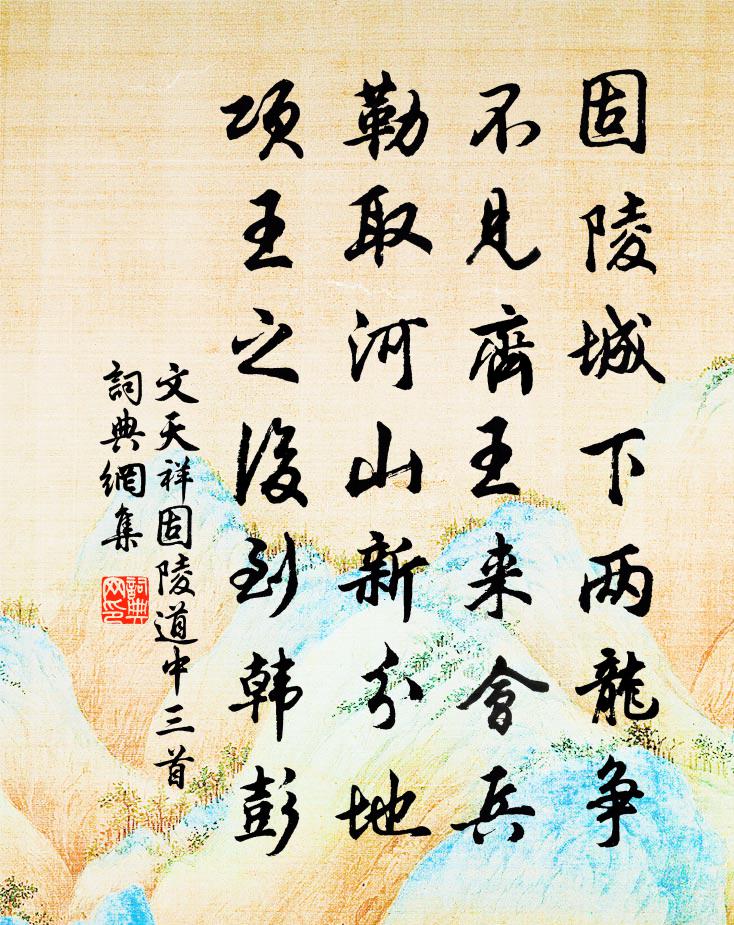 固陵城下两龍争
不見齊王来會兵
勒取河山新分地
项王之後到韩彭
文天祥固陵道中三首
詞典網集
詞典
网印